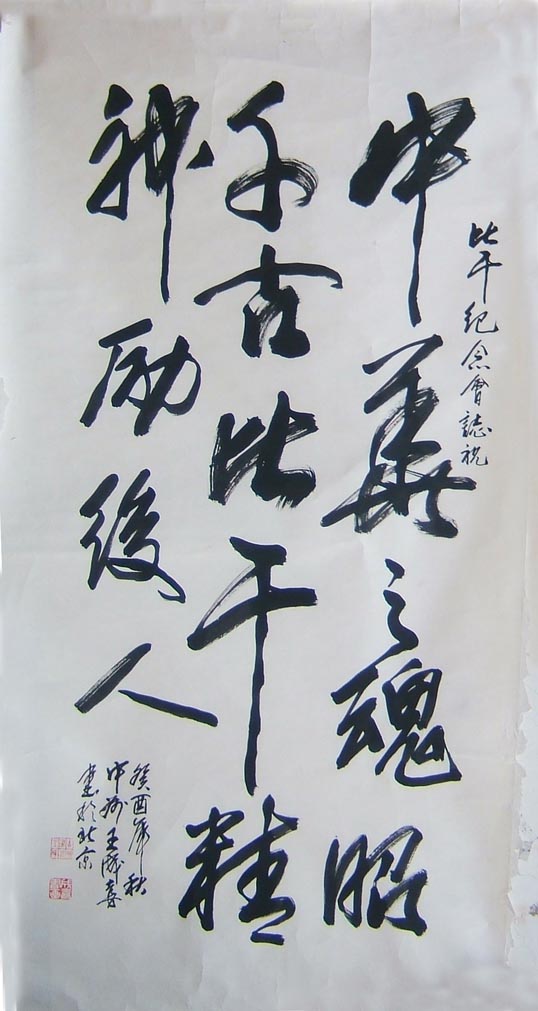 比干纪念會誌祝
中華之魂昭
千古比干精
神励後人
癸酉年秋
中州王成喜
書於北京